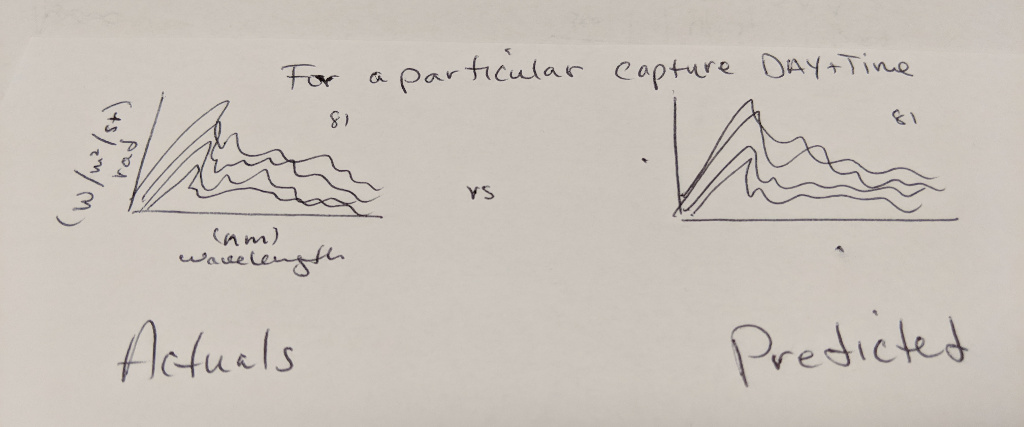 For a particular capture DAY+Time
(W/m²/st)
rad
81
(nm)
wavelength
Actuals
vs
81
Predicted